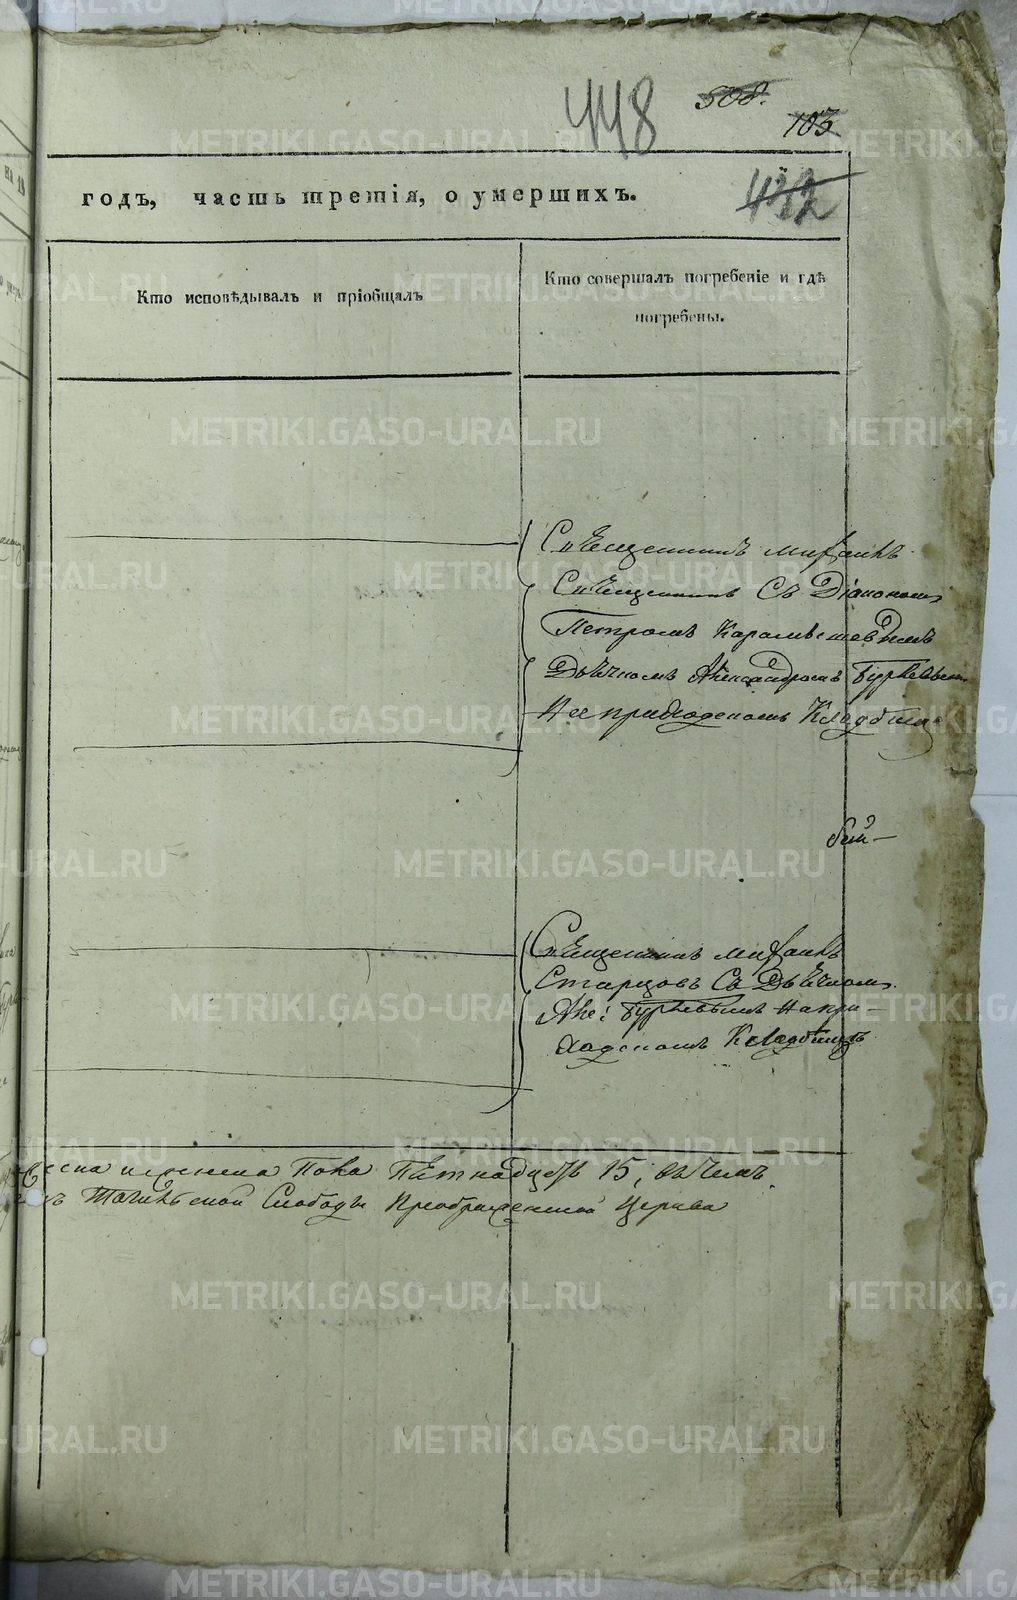 448 508.
103
432
годъ, часть третія, о умершихъ.
Кто исповѣдывалъ и пріобщалъ
Кто совершалъ погребеніе и гдѣ
погребены.
Священникъ Михаилъ
Священникъ Съ Діакономъ
Петромъ Карамышевымъ
Дьячкомъ Александромъ
На приходскомъ Кладбищѣ
Священникъ Михаилъ
Старцовъ Съ Дьячкомъ
Але: На при-
ходскомъ Кладбищѣ
пола Пятнадцать 15, въ чемъ
Слободы Преображенской Церкви
METRIKI.GASO-URAL.RU